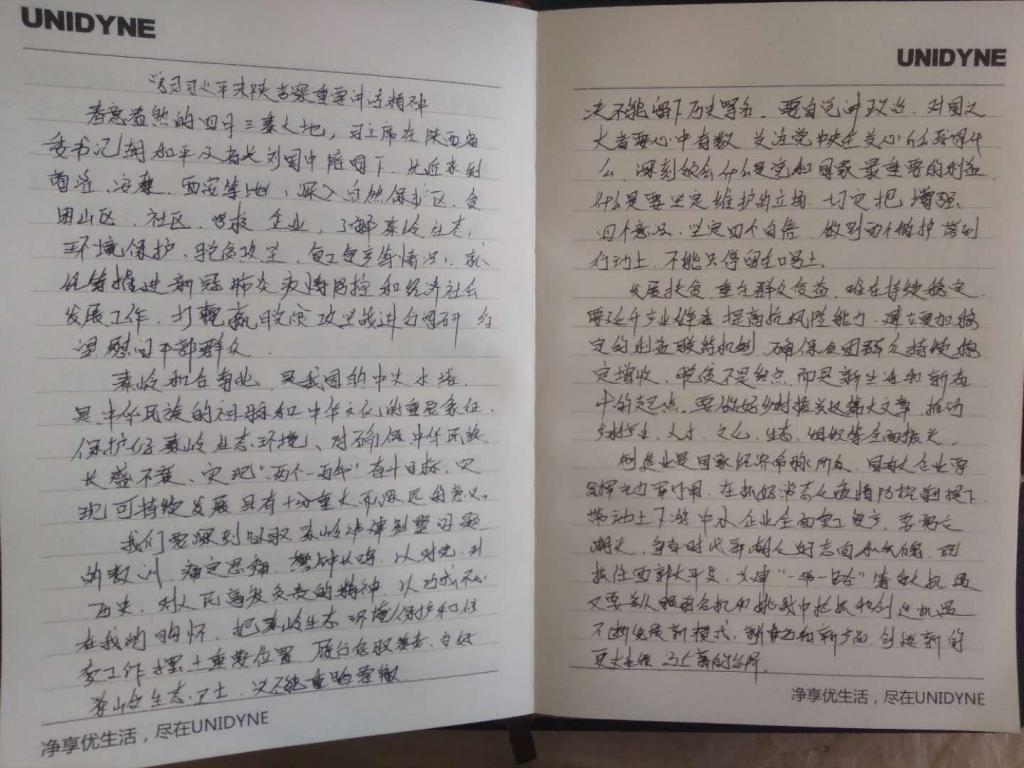 UNIDYNE
学习习近平来陕考察重要讲话精神
春意盎然的四月三秦大地，习主席在陕西省
委书记胡和平及省长刘国中陪同下，先后来到
商洛，安康，西安等地，深入自然保护区，贫
困山区，社区，学校，企业，了解秦岭生态，
环境保护，脱贫攻坚，复工复产等情况，就
统筹推进新冠肺炎疫情防控和经济社会
发展工作，打赢脱贫攻坚战进行调研，看
望慰问干部群众
秦岭和合南北，是我国的中央水塔，
是中华民族的祖脉和中华文化的重要象征，
保护好秦岭生态环境、对确保中华民族
长盛不衰、实现“两个一百年”奋斗目标，实
现可持续发展具有十分重大而深远的意义。
我们要深刻吸取秦岭违建别墅问题
的教训，痛定思痛，警钟长鸣，以对党，对
历史，对人民高度负责的精神，以功成不必
在我的胸怀，把秦岭生态环境保护和修
复工作摆上重要位置，履行好职责，当好
秦岭生态卫士，决不能重蹈覆辙
净享优生活，尽在UNIDYNE
UNIDYNE
决不能留下历史骂名，要自觉讲政治，对国之
大者要心中有数，关注党中央在关心什么强调什
么，深刻领会什么是党和国家最重要的利益，
什么是要坚定维护的立场，切实把增强
四个意识，坚定四个自信，做到两个维护落到
行动上，不能只停留在口号上
发展扶贫，重在群众受益，难在持续稳定
要延伸产业链条，提高抗风险能力，建立更加稳
定的利益联结机制，确保贫困群众持续稳
定增收，脱贫不是终点，而是新生活和新奋
斗的起点，要做好乡村振兴这篇大文章，推动
乡村产业，人才，文化，生态，组织等全面振兴，
制造业是国家经济命脉所系，国有大企业要
发挥主力军作用，在抓好常态化疫情防控前提下
带动上下游中小企业全面复工复产，要勇立
潮头，争当时代弄潮儿的志向和气魄，既
抓住西部大开发，共建“一带一路”等重大机遇
又要善于从眼前危机和挑战中抢抓和创造机遇
不断发展新模式，新动力和新产品，创造新的
净享优生活，尽在UNIDYNE